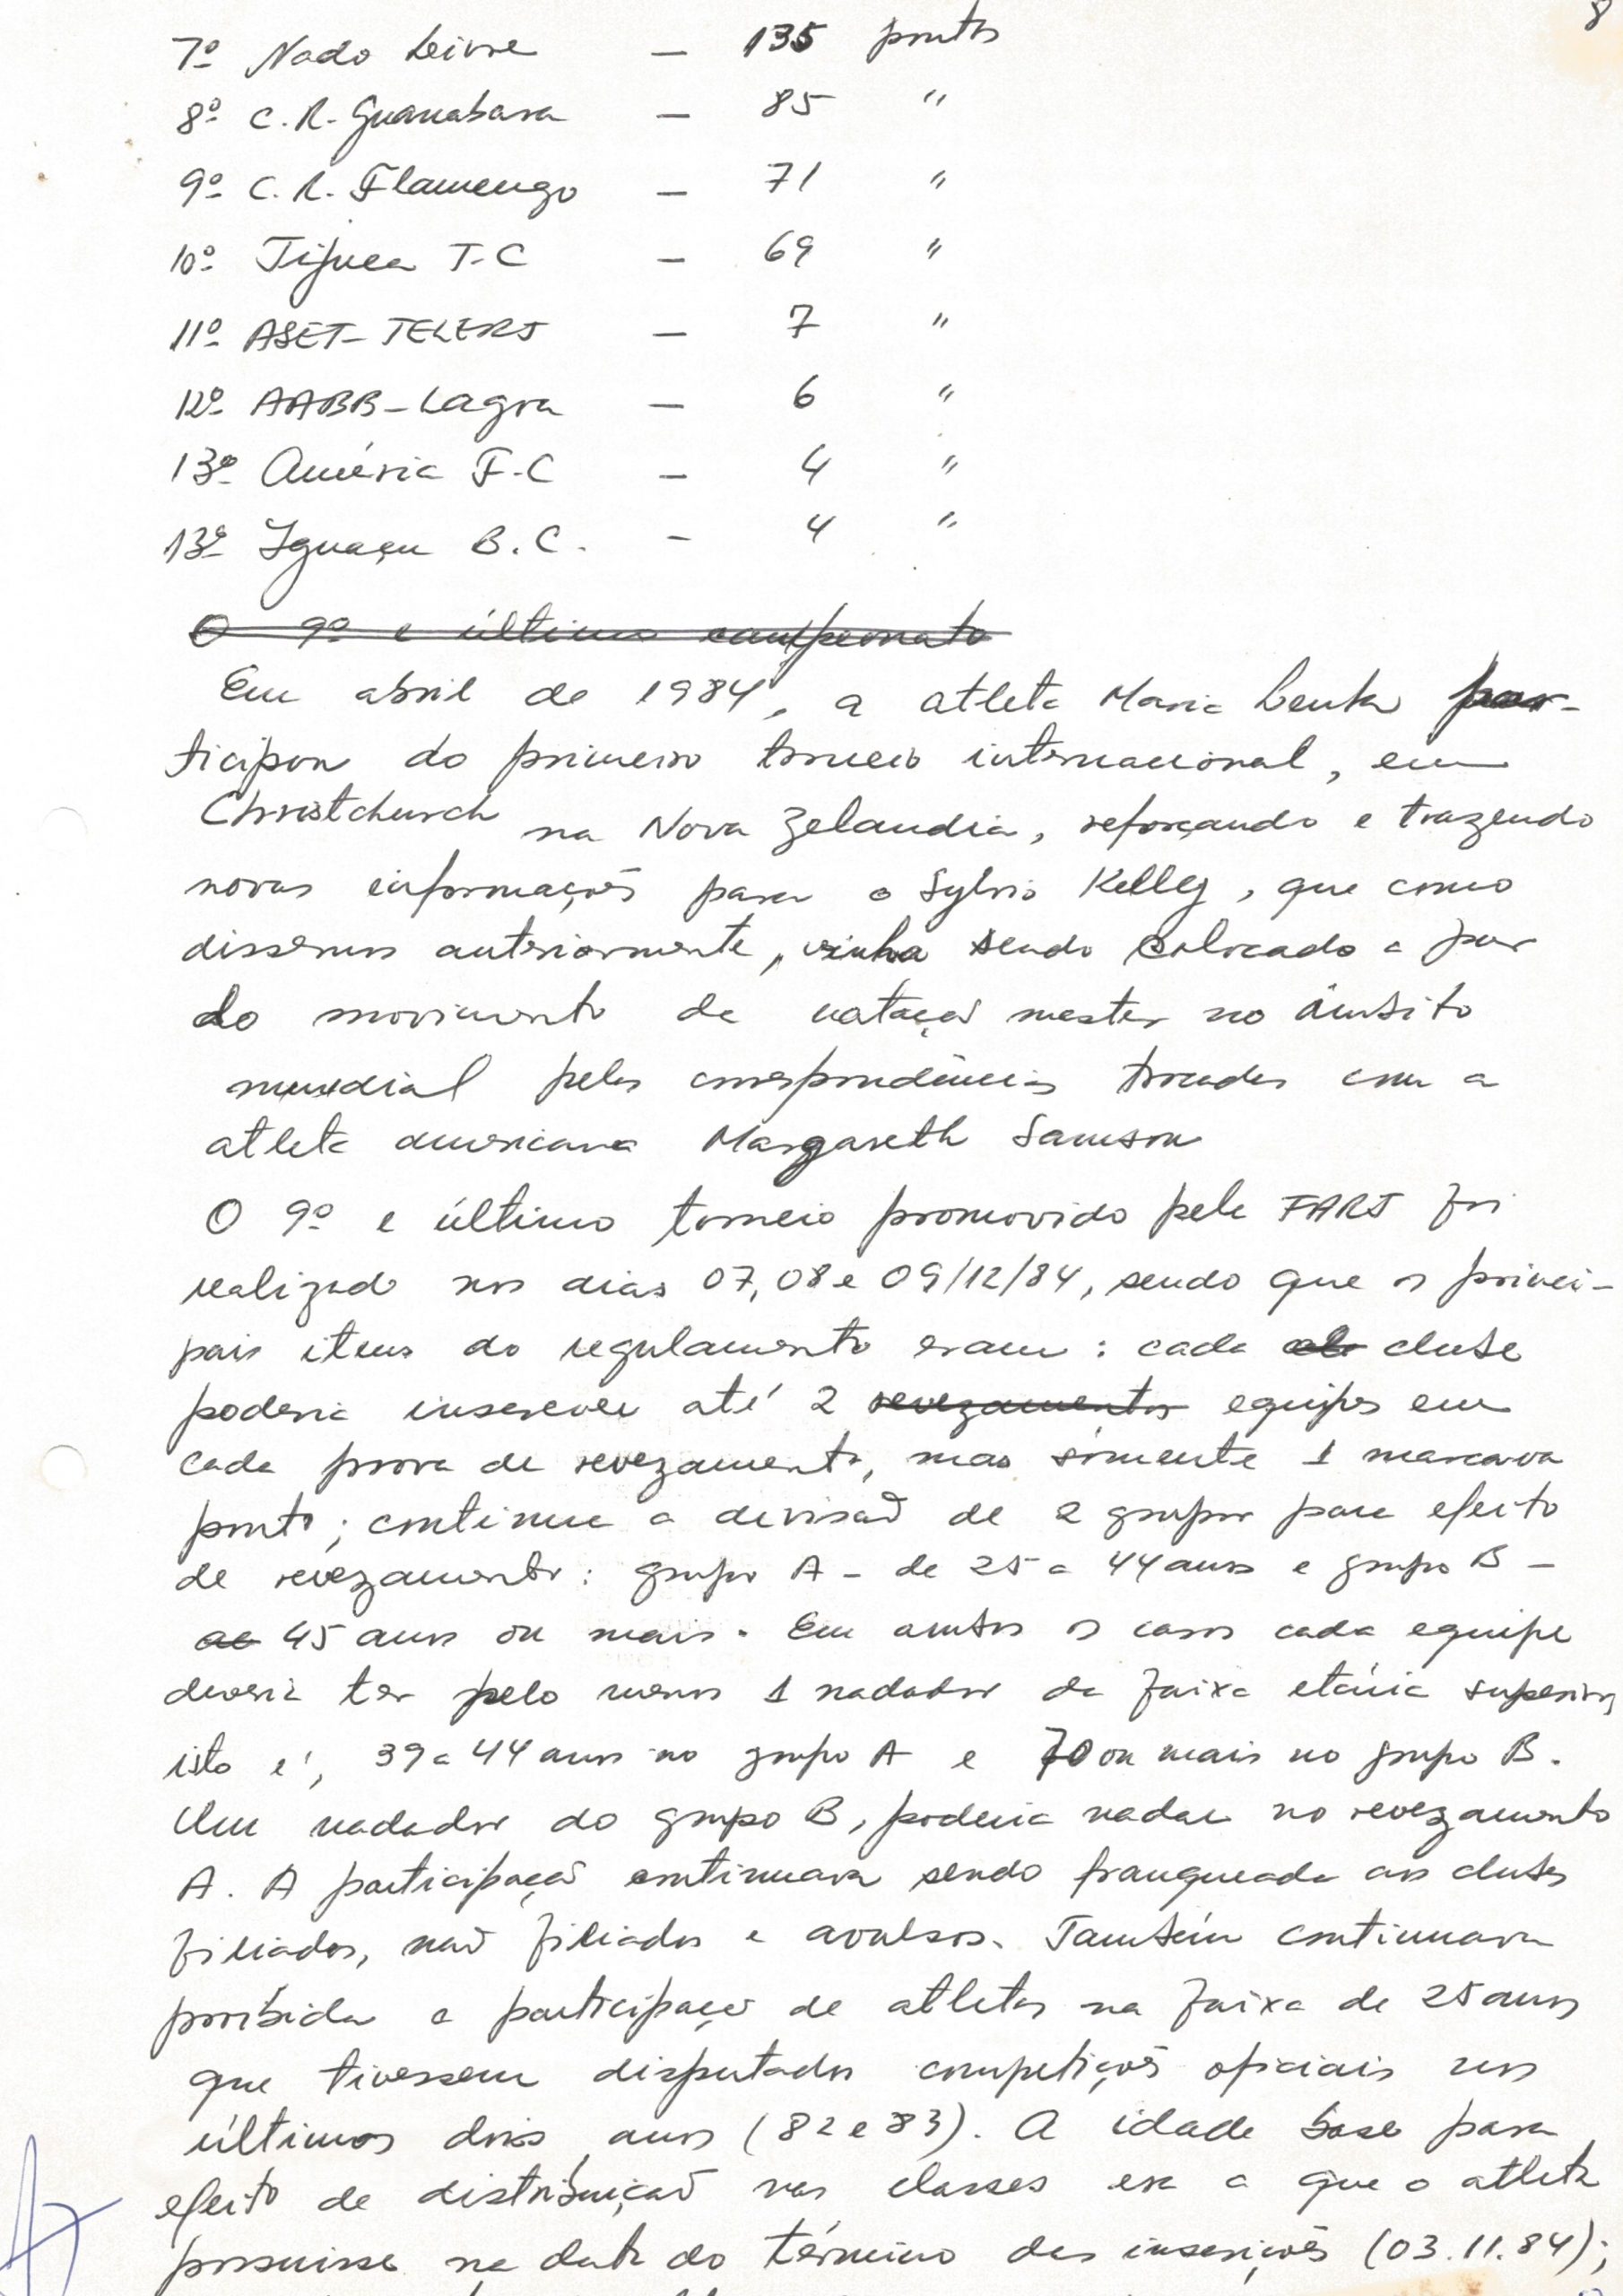 8
7º Nado Livre — 135 pontos
8º C.R. Guanabara — 85 "
9º C.R. Flamengo — 71 "
10º Tijuca T.C — 69 "
11º ASET-TELERJ — 7 "
12º AABB-Lagoa — 6 "
13º América F.C — 4 "
13º Iguaçu B.C. — 4 "
O 9º e último campeonato
Em abril de 1984, a atleta Maria Lenk par-
ticipou do primeiro torneio internacional, em
Christchurch na Nova Zelandia, reforçando e trazendo
novas informações para o Sylvio Kelly, que como
dissemos anteriormente, vinha sendo colocado a par
do movimento de natação master no âmbito
mundial pelas correspondências trocadas com a
atleta americana Margareth Samson
O 9º e último torneio promovido pela FARJ foi
realizado nos dias 07,08 e 09/12/84, sendo que os princi-
pais itens do regulamento eram: cada clube
poderia inscrever até 2 revezamentos equipes em
cada prova de revezamento, mas sómente 1 marcava
ponto; continua a divisão de 2 grupos para efeito
de revezamento: grupo A - de 25 a 44 anos e grupo B -
de 45 anos ou mais. Em ambos os casos cada equipe
deveria ter pelo menos 1 nadador da faixa etária superior,
isto é, 39 a 44 anos no grupo A e 70 ou mais no grupo B.
Um nadador do grupo B, poderia nadar no revezamento
A. A participação continuava sendo franqueada aos clubes
filiados, não filiados e avulsos. Também continuava
proibida a participação de atletas na faixa de 25 anos
que tivessem disputados competições oficiais nos
últimos dois anos (82 e 83). A idade base para
efeito de distribuição nas classes era a que o atleta
possuisse na data do término das inscrições (03.11.84);